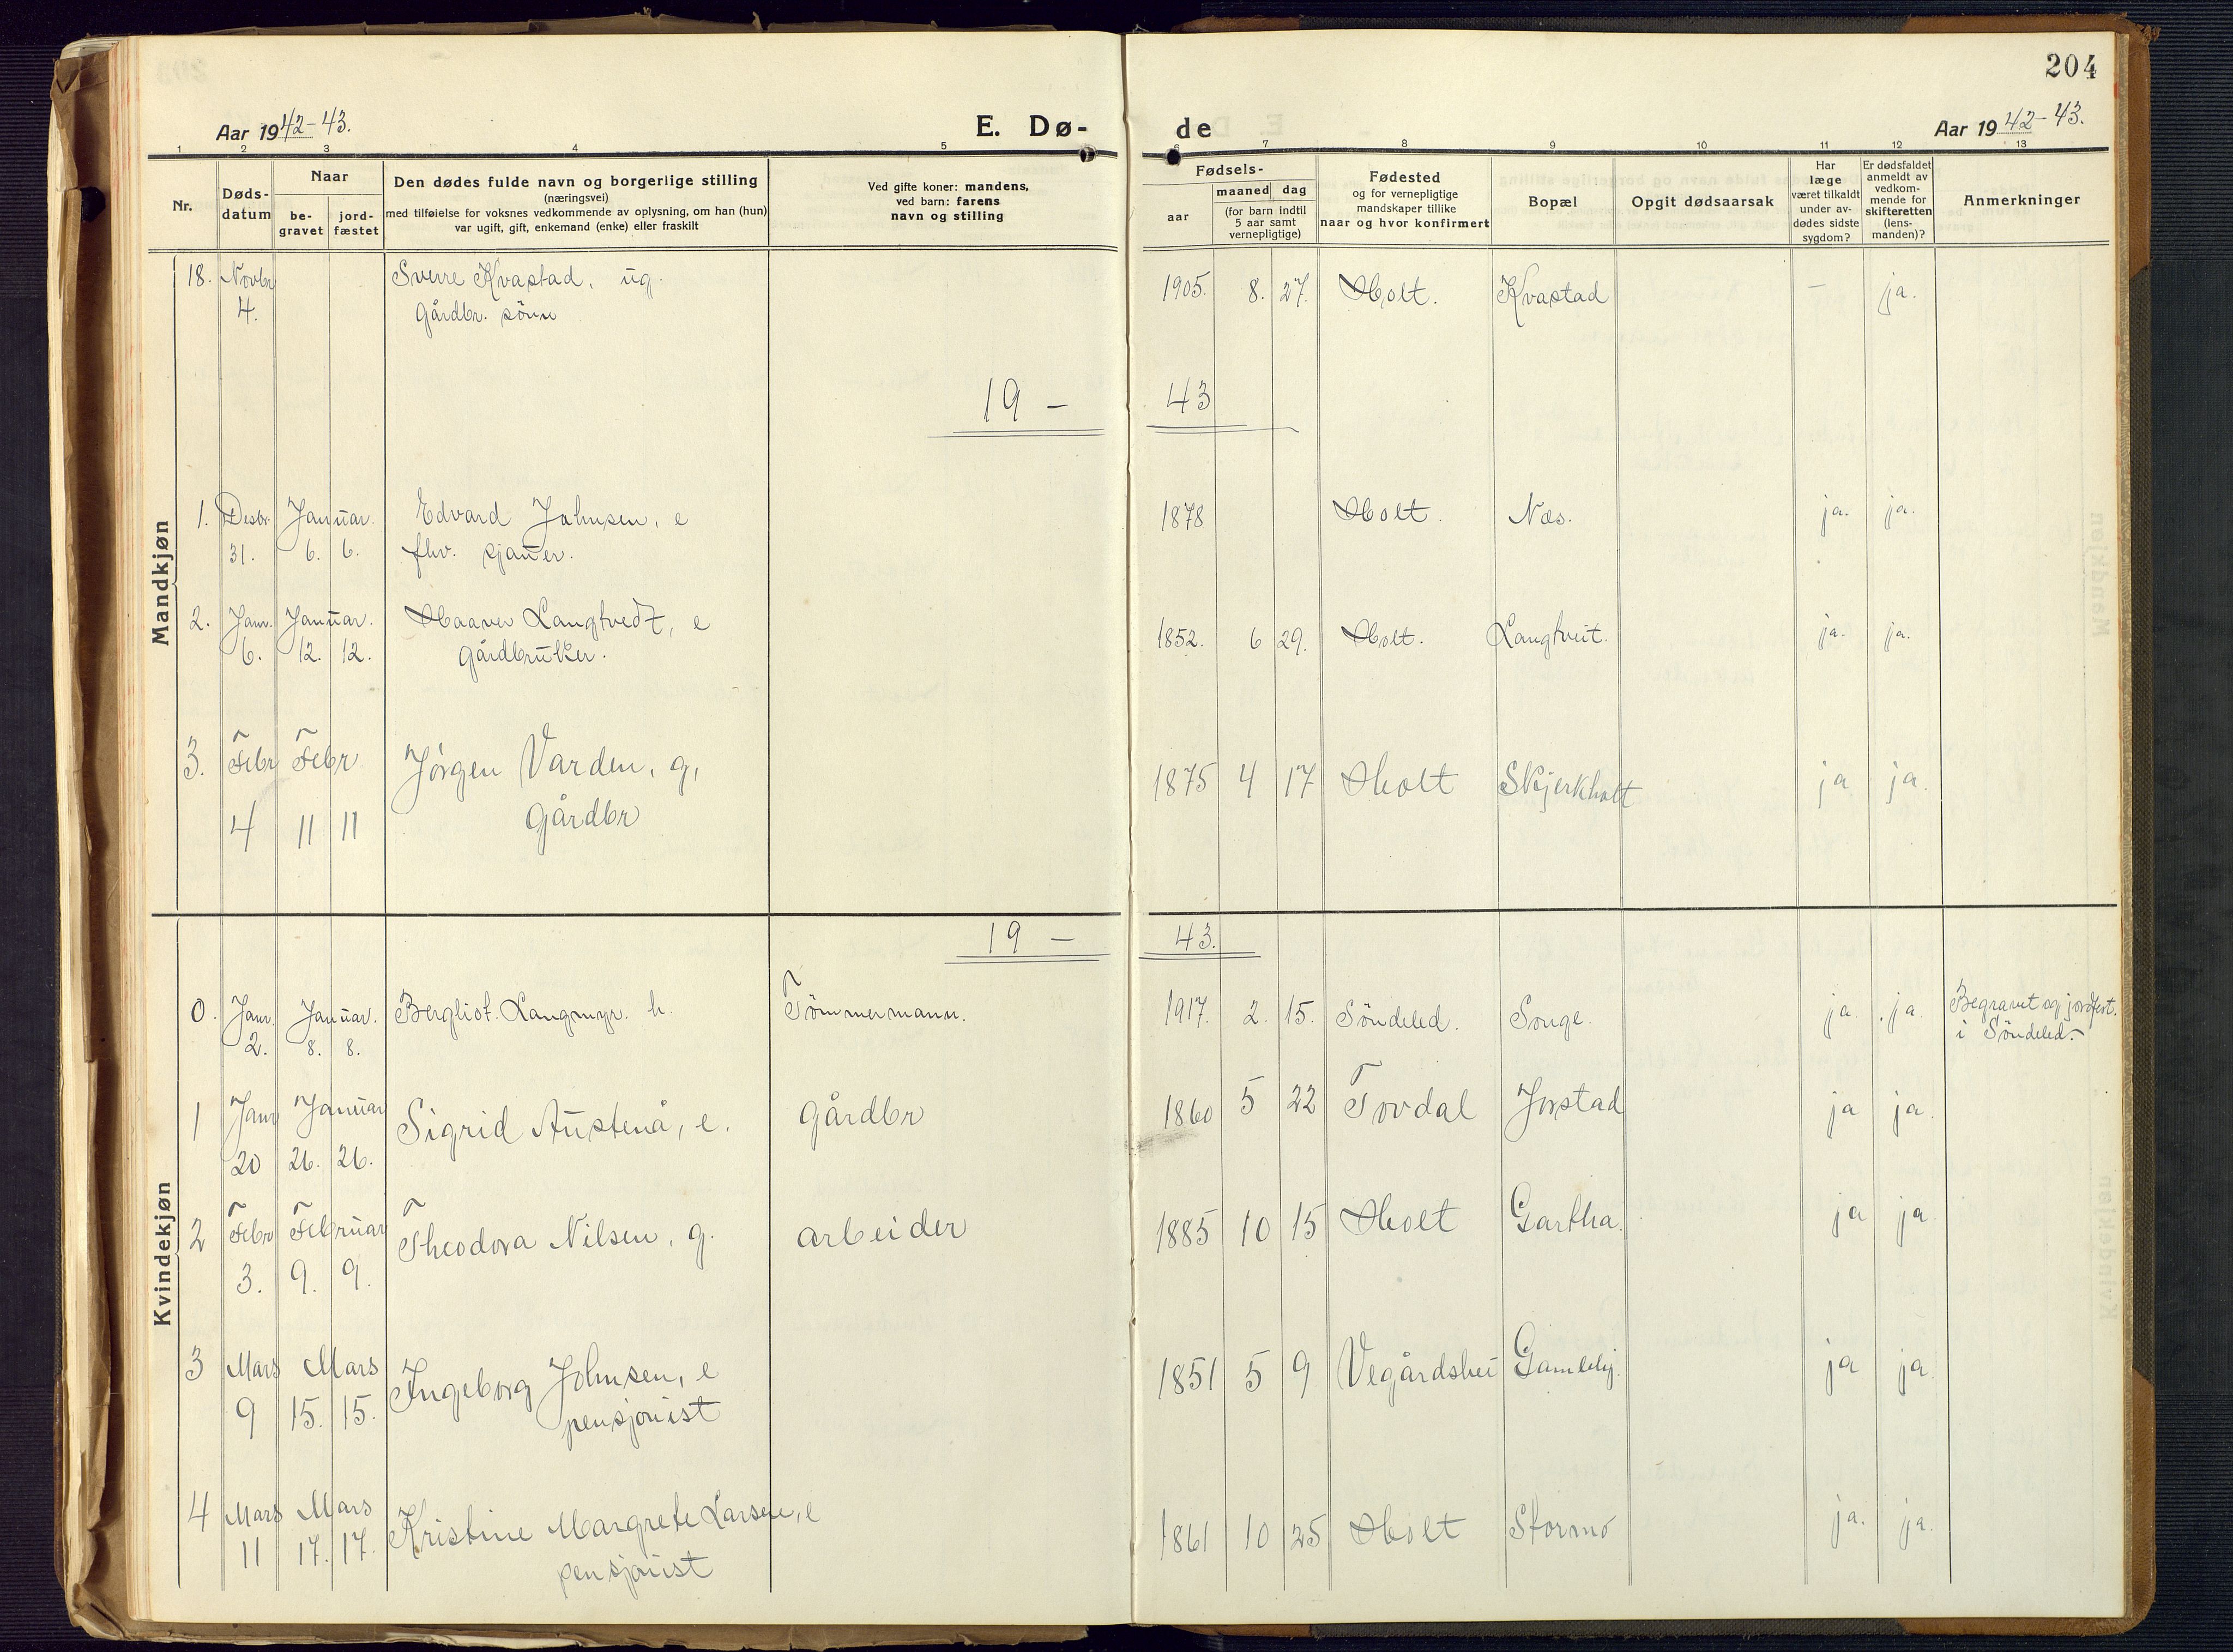 204
Aar 1942-43.
E. Dø-
de
Aar 1942-43.
1 2 3 4 5 6 7 8 9 10 11 12 13
Nr.
Døds-
datum
Naar
be-
gravet
jord-
fæstet
Den dødes fulde navn og borgerlige stilling
(næringsvei)
med tilføielse for voksnes vedkommende av oplysning, om han (hun)
var ugift, gift, enkemand (enke) eller fraskilt
Ved gifte koner: mandens,
ved barn: farens
navn og stilling
Fødsels-
aar
maaned dag
(for barn indtil
5 aar samt
vernepligtige)
Fødested
og for vernepligtige
mandskaper tillike
naar og hvor konfirmert
Bopæl
Opgit dødsaarsak
Har
læge
været tilkaldt
under av-
dødes sidste
sygdom?
Er dødsfaldet
anmeldt av
vedkom-
mende for
skifteretten
(lens-
manden)?
Anmerkninger
Mandkjøn
18. Novbr Sverre Kvastad, ug. 1905. 8. 27. Holt. Kvastad – ja.
4. Gårdbr. sönn
19 – 43
1. Desbr. Januar. Edvard Johnsen, e 1878 Holt. Næs. ja. ja.
31. 6. 6. fhv. sjauer.
2. Janr. Januar. Haaver Langtvedt, e 1852. 6 29. Holt. Langtveit. ja. ja.
6. 12. 12. Gårdbruker.
3. Febr Febr Jörgen Varden, g, 1875 4 17 Holt Skjerkholt ja ja.
4 11 11 Gårdbr
Kvindekjøn
19 – 43.
0. Janr. Januar. Bergliot Langmyr. h. Tömmermann. 1917. 2. 15. Söndeled. Songe. ja. ja. Begravet og jordfest.
2. 8. 8. i Söndeled.-
1 Janr Januar Sigrid Austenå, e. Gårdbr 1860 5 22 Tovdal Jorstad ja ja.
20 26. 26.
2 Febr Februar Theodora Nilsen, g. arbeider 1885 10 15 Holt Gartha. ja ja
3. 9. 9.
3 Mars Mars Ingeborg Johnsen, e 1851 5 9 Vegårdshei Gamlehj. ja ja
9 15. 15. pensjonist
4 Mars Mars Kristine Margrete Larsen, e 1861 10 25 Holt Stormo ja. ja.
11 17. 17. pensjonist